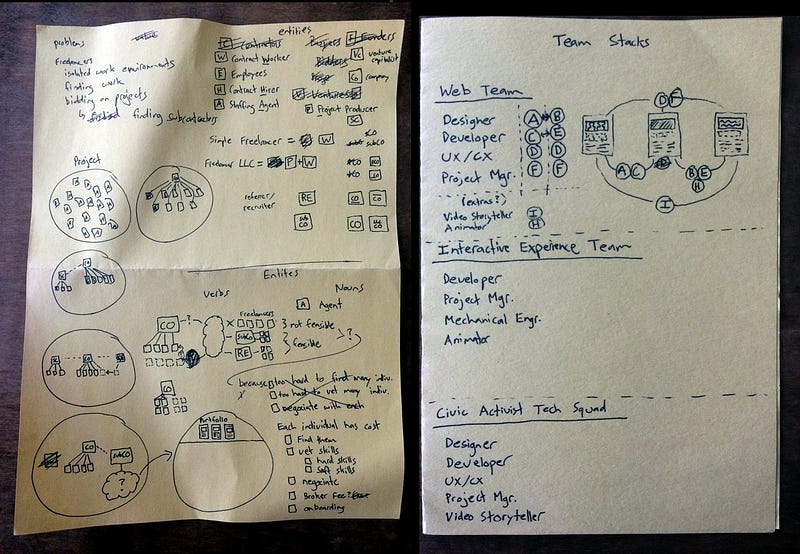 problems
Freelancers
isolated work environments
finding work
bidding on projects
↳ finding subcontractors
entities
C Contractors
W Contract Worker
E Employees
H Contract Hirer
A Staffing Agent
Buyers
Bidders
Funders
VC venture capitalist
CO company
P Project Producer
SC
Simple Freelancer = W
Freelancer LLC = P + W
referrer/
recruiter
RE
SUB
CO
CO
CO
CO
Project
Entites
Verbs
Nouns
A Agent
Freelancers
CO
?
X
} not feasible
SUBCO
RE
} feasible
?
because too hard to find many indiv.
too hard to vet many indiv.
negociate with each
CO
Each individual has cost
Find them
vet skills
hard skills
soft skills
negociate
Broker Fee
onboarding
CO
SUBCO
?
Portfolio
Team Stacks
Web Team
Designer A B
Developer C E
UX/CX D D
Project Mgr. F F
D F
A C
B E
H
I
(extras?)
Video Storyteller I
Animator H
Interactive Experience Team
Developer
Project Mgr.
Mechanical Engr.
Animator
Civic Activist Tech Squad
Designer
Developer
UX/CX
Project Mgr.
Video Storyteller